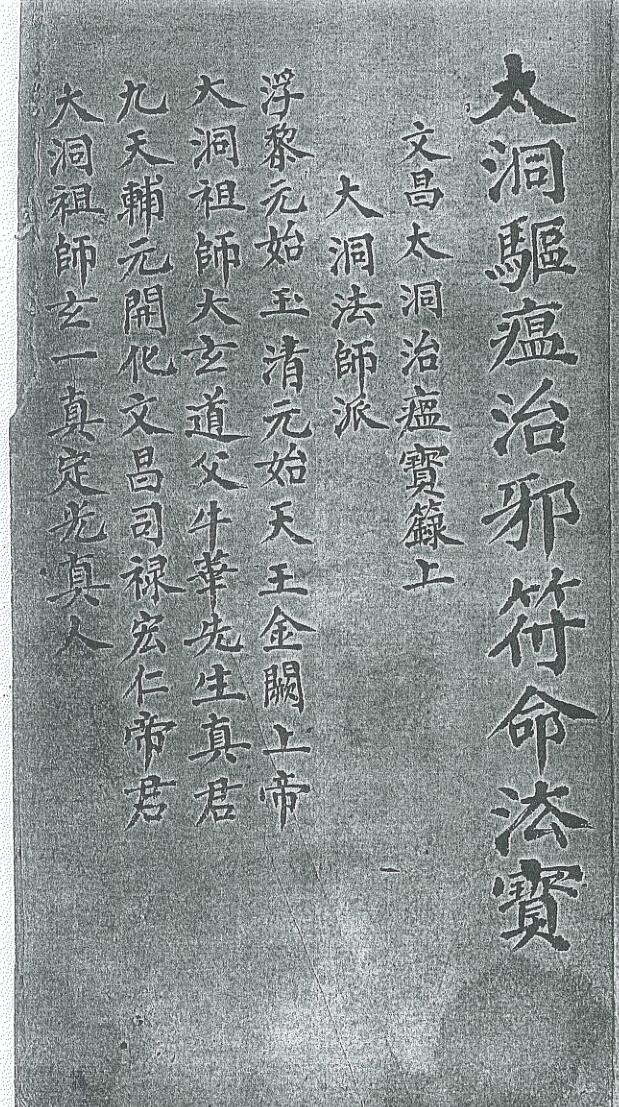 太洞驅瘟治邪符命法寳
文昌太洞治瘟寳籙上
大洞法師派
浮黎元始玉清元始天王金闕上帝
大洞祖師大玄道父牛華先生真君
九天輔元開化文昌司禄宏仁帝君
大洞祖師玄一真定光真人